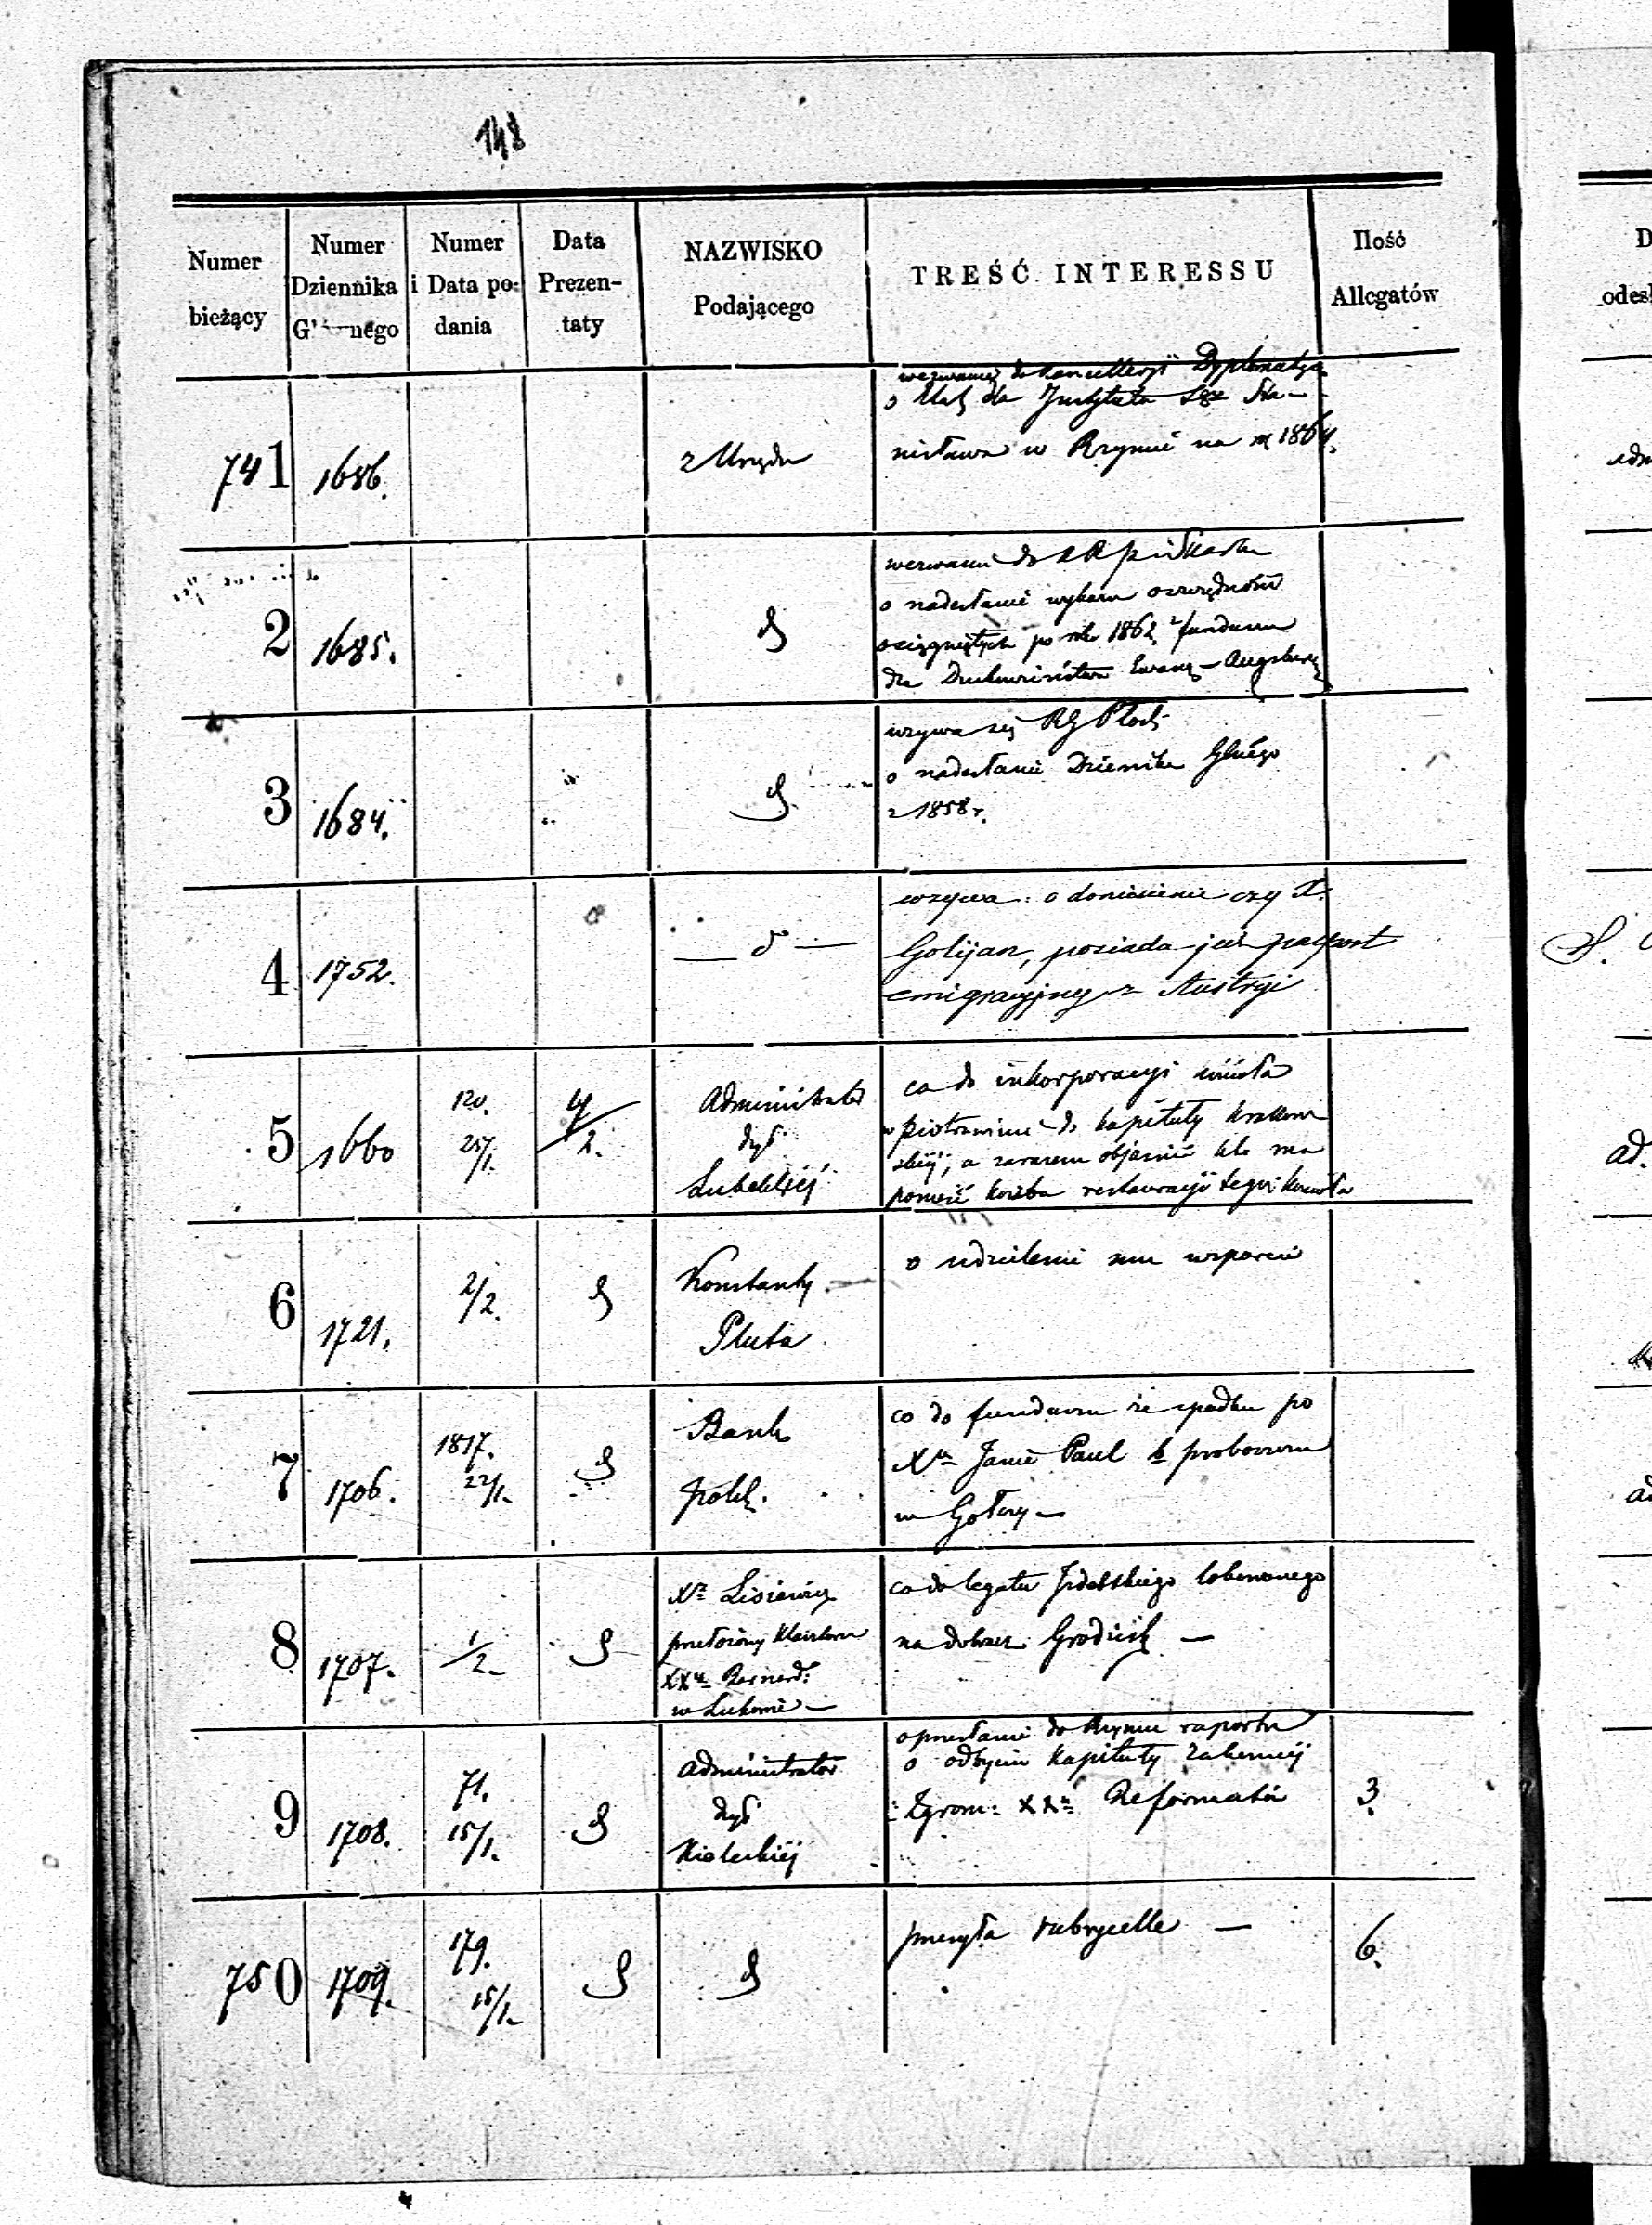 148
Numer bieżący
Numer Dziennika Głównego
Numer i Data podania
Data Prezentaty
NAZWISKO Podającego
TREŚĆ INTERESSU
Ilość Allegatów
741
1686.
z Urzędu
wezwanie do Kancellaryi Dyplomatycz
o dla Instytutu Sgo Sta-
nisława w Rzymie na 1864.
2
1685.
d
wezwanie do
o nadesłanie wykazu oszczędności
osiągniętych po roku 1862 z funduszu
dla Duchowieństwa Ewang-Augsburg
3
1684.
d
wzywa się RG Płock
o nadesłanie Dziennika Głnego
z 1858 r.
4
1752.
— d —
wzywa: o doniesienie czy X.
Golijan, posiada już paszport
emigracyjny z Austryi
5
1660
120.
25/1.
4/2.
Administrator
dyec
Lubelskiej
co do inkorporacyi kościoła
w Piotrawinie do kapituły krakow
skiej, a zarazem objaśnić kto ma
ponieść koszta restauracyi tegoż kościoła
6
1721.
2/2.
d
Konstanty
Pluta
o udzielenie mu wsparcia
7
1706.
1817.
22/1.
d
Bank
polsk.
co do funduszu ze spadku po
Xdzu Janie Paul b proboszczu
w Gołczy —
8
1707.
1/2.
d
Xdz Lisiewicz
przełożony Klasztoru
XXży Bernard:
w Łukowie —
co do legatu lokowanego
na dobrach Grodzisk —
9
1708.
71.
15/1.
d
Administrator
dyec
Kieleckiej
o przesłanie do Rzymu raportu
o odbyciu Kapituły zakonnej
Zgrom: XXży Reformatów
3
750
1709.
179.
15/1.
d
d
przesyła rubrycelle —
6.